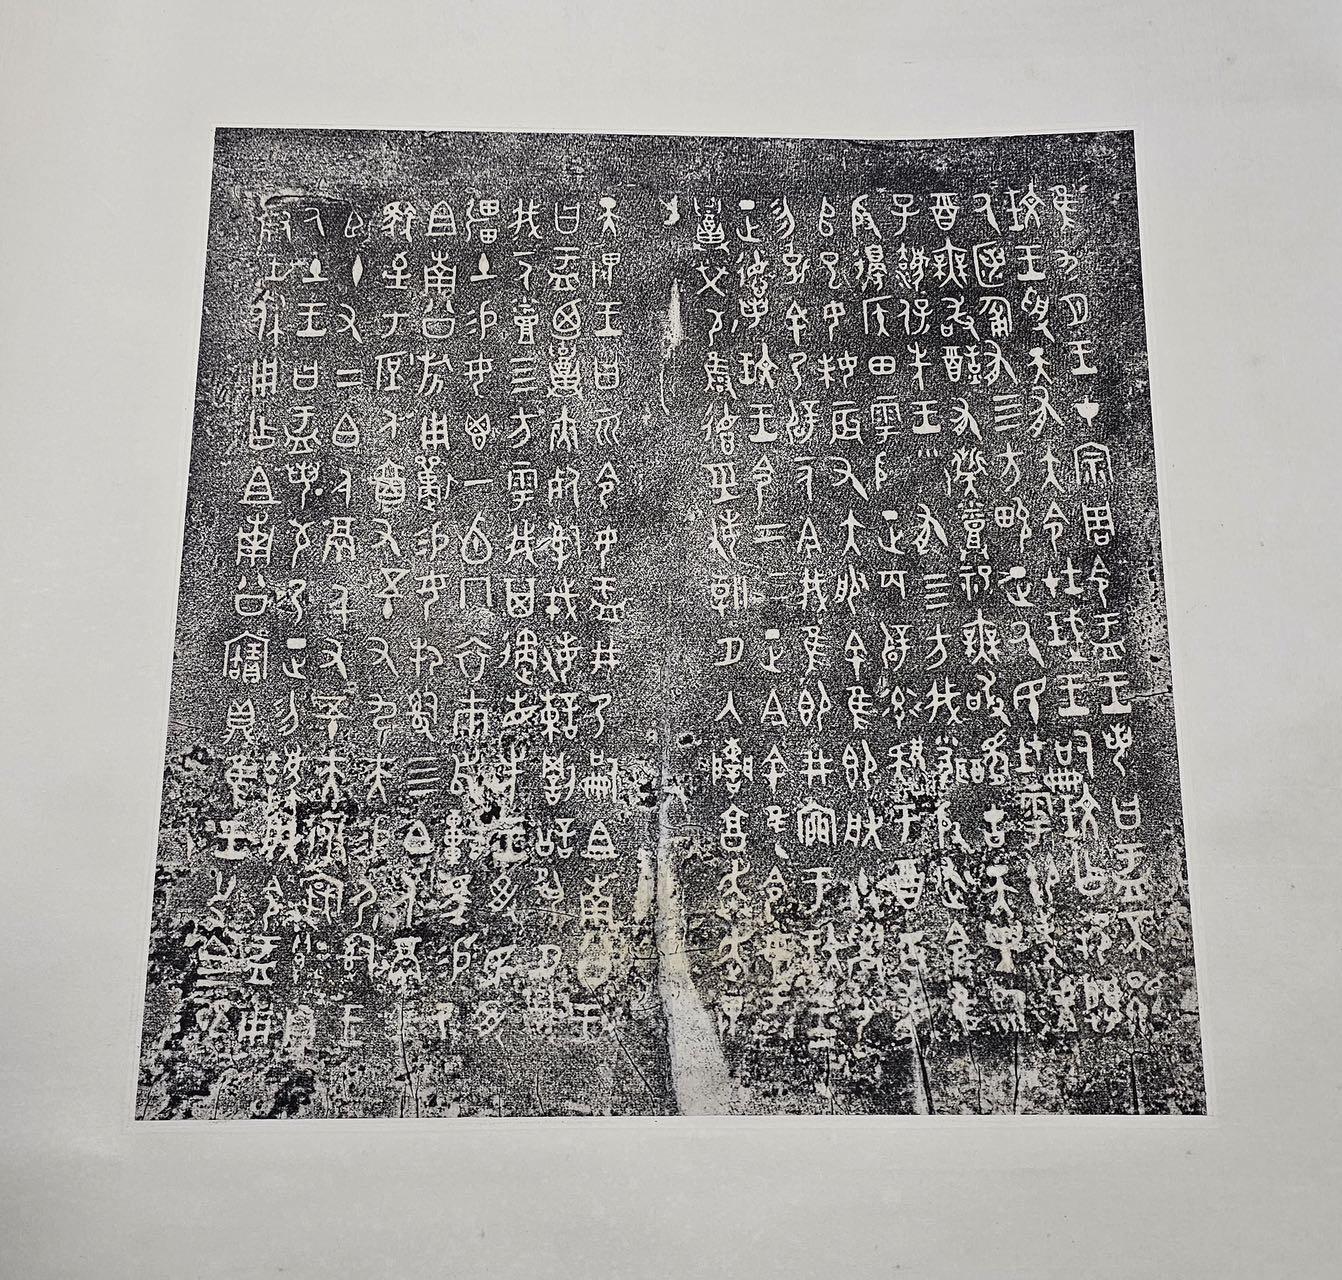 隹九月王才宗周令盂王若曰盂不顯
玟王受天有大令在珷王嗣玟乍邦闢
厥匿匍有四方畯正厥民在雩御事
酉無敢有烝祀無敢古天異臨
子灋保先王有四方我聞殷述令隹
殷邊侯田雩殷正百辟率肄于酉古喪
已女妹辰又大服余隹即朕小學女
勿余乃辟一人今我隹即井于玟王
正德若玟王令二三正今余隹令女盂
召榮敬德經敏朝夕入享奔走畏
天畏王曰令女盂井乃嗣且南公王
曰盂廼召夾死司戎敏罰訟夙夕召
我一人四方雩我其遹省先王受民受
疆土易女鬯一卣冂衣巿舄車馬易乃
且南公旂用易女邦司四白人鬲自
馭至于庶人六百又五十又九夫易尸司王
臣十又三白人鬲千又五十夫自
厥土王曰盂若敬乃正勿灋朕令盂用
對王休用乍且南公寶鼎隹王廿又三祀